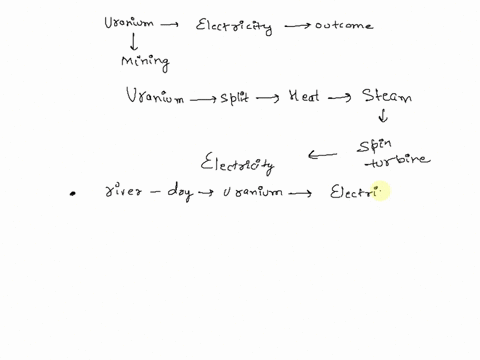 Uranium → Electricity → outcome
↓
Mining
Uranium → split → Heat → Steam
↓
Electricity ← spin turbine
• river - day → Uranium → Electri